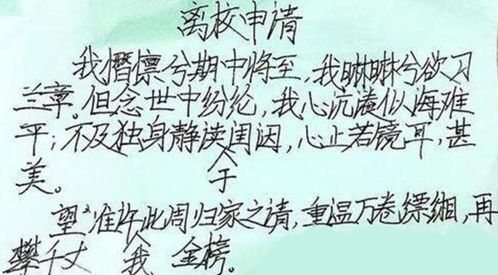 离校申请
我憯懔兮期中将至,我兮欲习
兰章。但念世中纷纶,我心沉淹似海难
平;不及独身静读闺因,心止若镜耳,甚
美。 于
望准许此周归家之请,重温万卷缥缃,再
攀千丈 我 金榜。